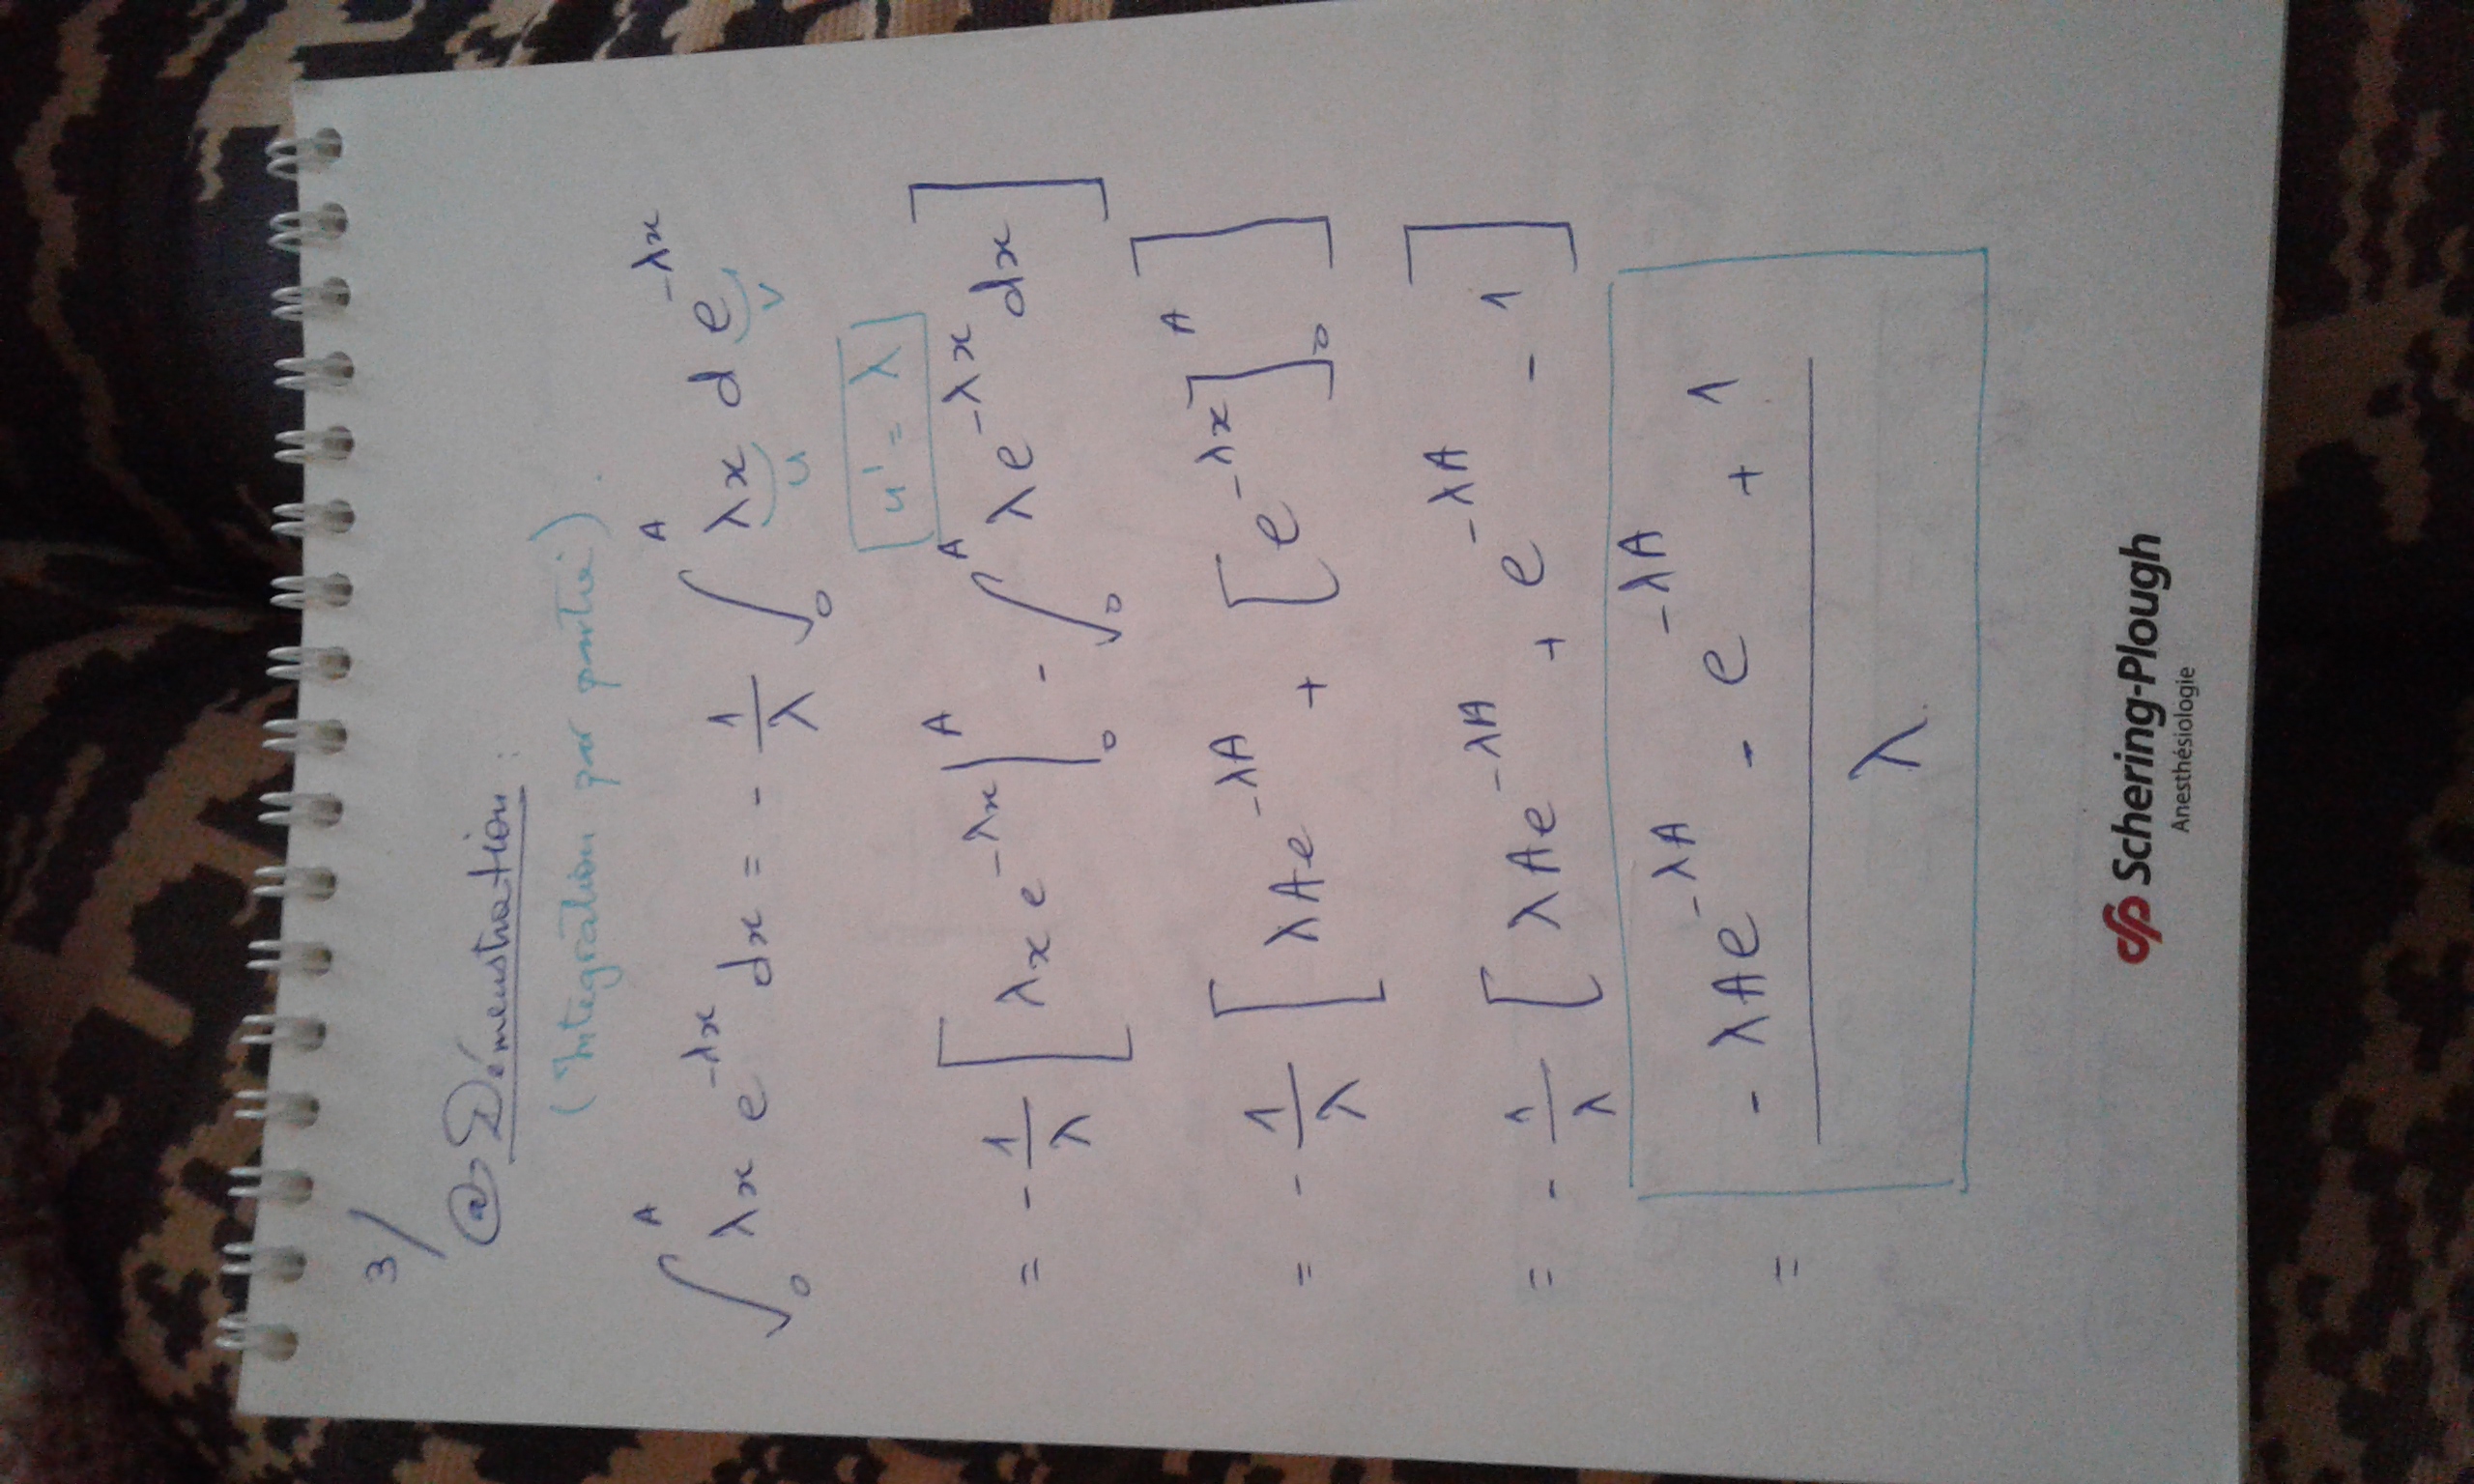 3/
@ Démonstration :
(Intégration par partie).
∫₀ᴬ λx e^{-λx} dx = - 1/λ ∫₀ᴬ λx d e^{-λx}
u v
u' = λ
= - 1/λ [ λx e^{-λx} |₀ᴬ - ∫₀ᴬ λe^{-λx} dx ]
= - 1/λ [ λAe^{-λA} + [e^{-λx}]₀ᴬ ]
= - 1/λ [ λAe^{-λA} + e^{-λA} - 1 ]
= (- λAe^{-λA} - e^{-λA} + 1) / λ
Schering-Plough
Anesthésiologie